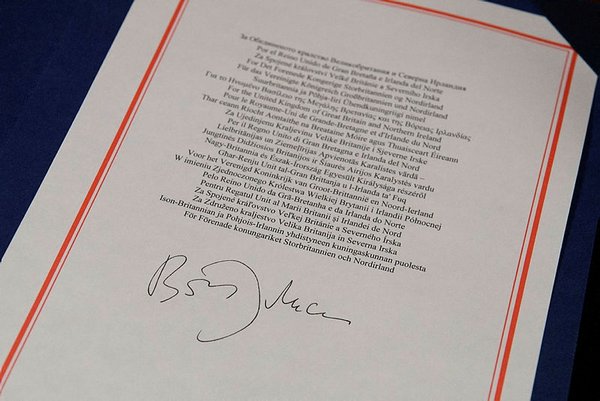 За Обединеното кралство Великобритания и Северна Ирландия
Por el Reino Unido de Gran Bretaña e Irlanda del Norte
Za Spojené království Velké Británie a Severního Irska
For Det Forenede Kongerige Storbritannien og Nordirland
Für das Vereinigte Königreich Großbritannien und Nordirland
Suurbritannia ja Põhja-Iiri Ühendkuningriigi nimel
Για το Ηνωμένο Βασίλειο της Μεγάλης Βρετανίας και της Βόρειας Ιρλανδίας
For the United Kingdom of Great Britain and Northern Ireland
Pour le Royaume-Uni de Grande-Bretagne et d'Irlande du Nord
Thar ceann Ríocht Aontaithe na Breataine Móire agus Thuaisceart Éireann
Za Ujedinjenu Kraljevinu Velike Britanije i Sjeverne Irske
Per il Regno Unito di Gran Bretagna e Irlanda del Nord
Lielbritānijas un Ziemeļīrijas Apvienotās Karalistes vārdā –
Jungtinės Didžiosios Britanijos ir Šiaurės Airijos Karalystės vardu
Nagy-Britannia és Észak-Írország Egyesült Királysága részéről
Għar-Renju Unit tal-Gran Britanja u l-Irlanda ta' Fuq
Voor het Verenigd Koninkrijk van Groot-Brittannië en Noord-Ierland
W imieniu Zjednoczonego Królestwa Wielkiej Brytanii i Irlandii Północnej
Pelo Reino Unido da Grã-Bretanha e da Irlanda do Norte
Pentru Regatul Unit al Marii Britanii și Irlandei de Nord
Za Spojené kráľovstvo Veľkej Británie a Severného Írska
Za Združeno kraljestvo Velika Britanija in Severna Irska
Ison-Britannian ja Pohjois-Irlannin yhdistyneen kuningaskunnan puolesta
För Förenade konungariket Storbritannien och Nordirland